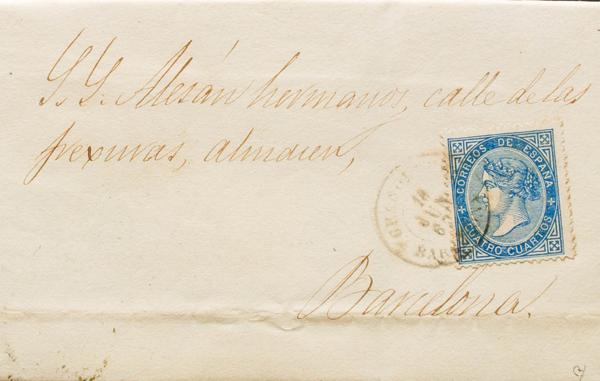 S. S. Alesán hermanos, calle de las
frexuras, almacen,
CORREOS DE ESPAÑA
CUATRO CUARTOS
18
JUN
BAR
Barcelona.